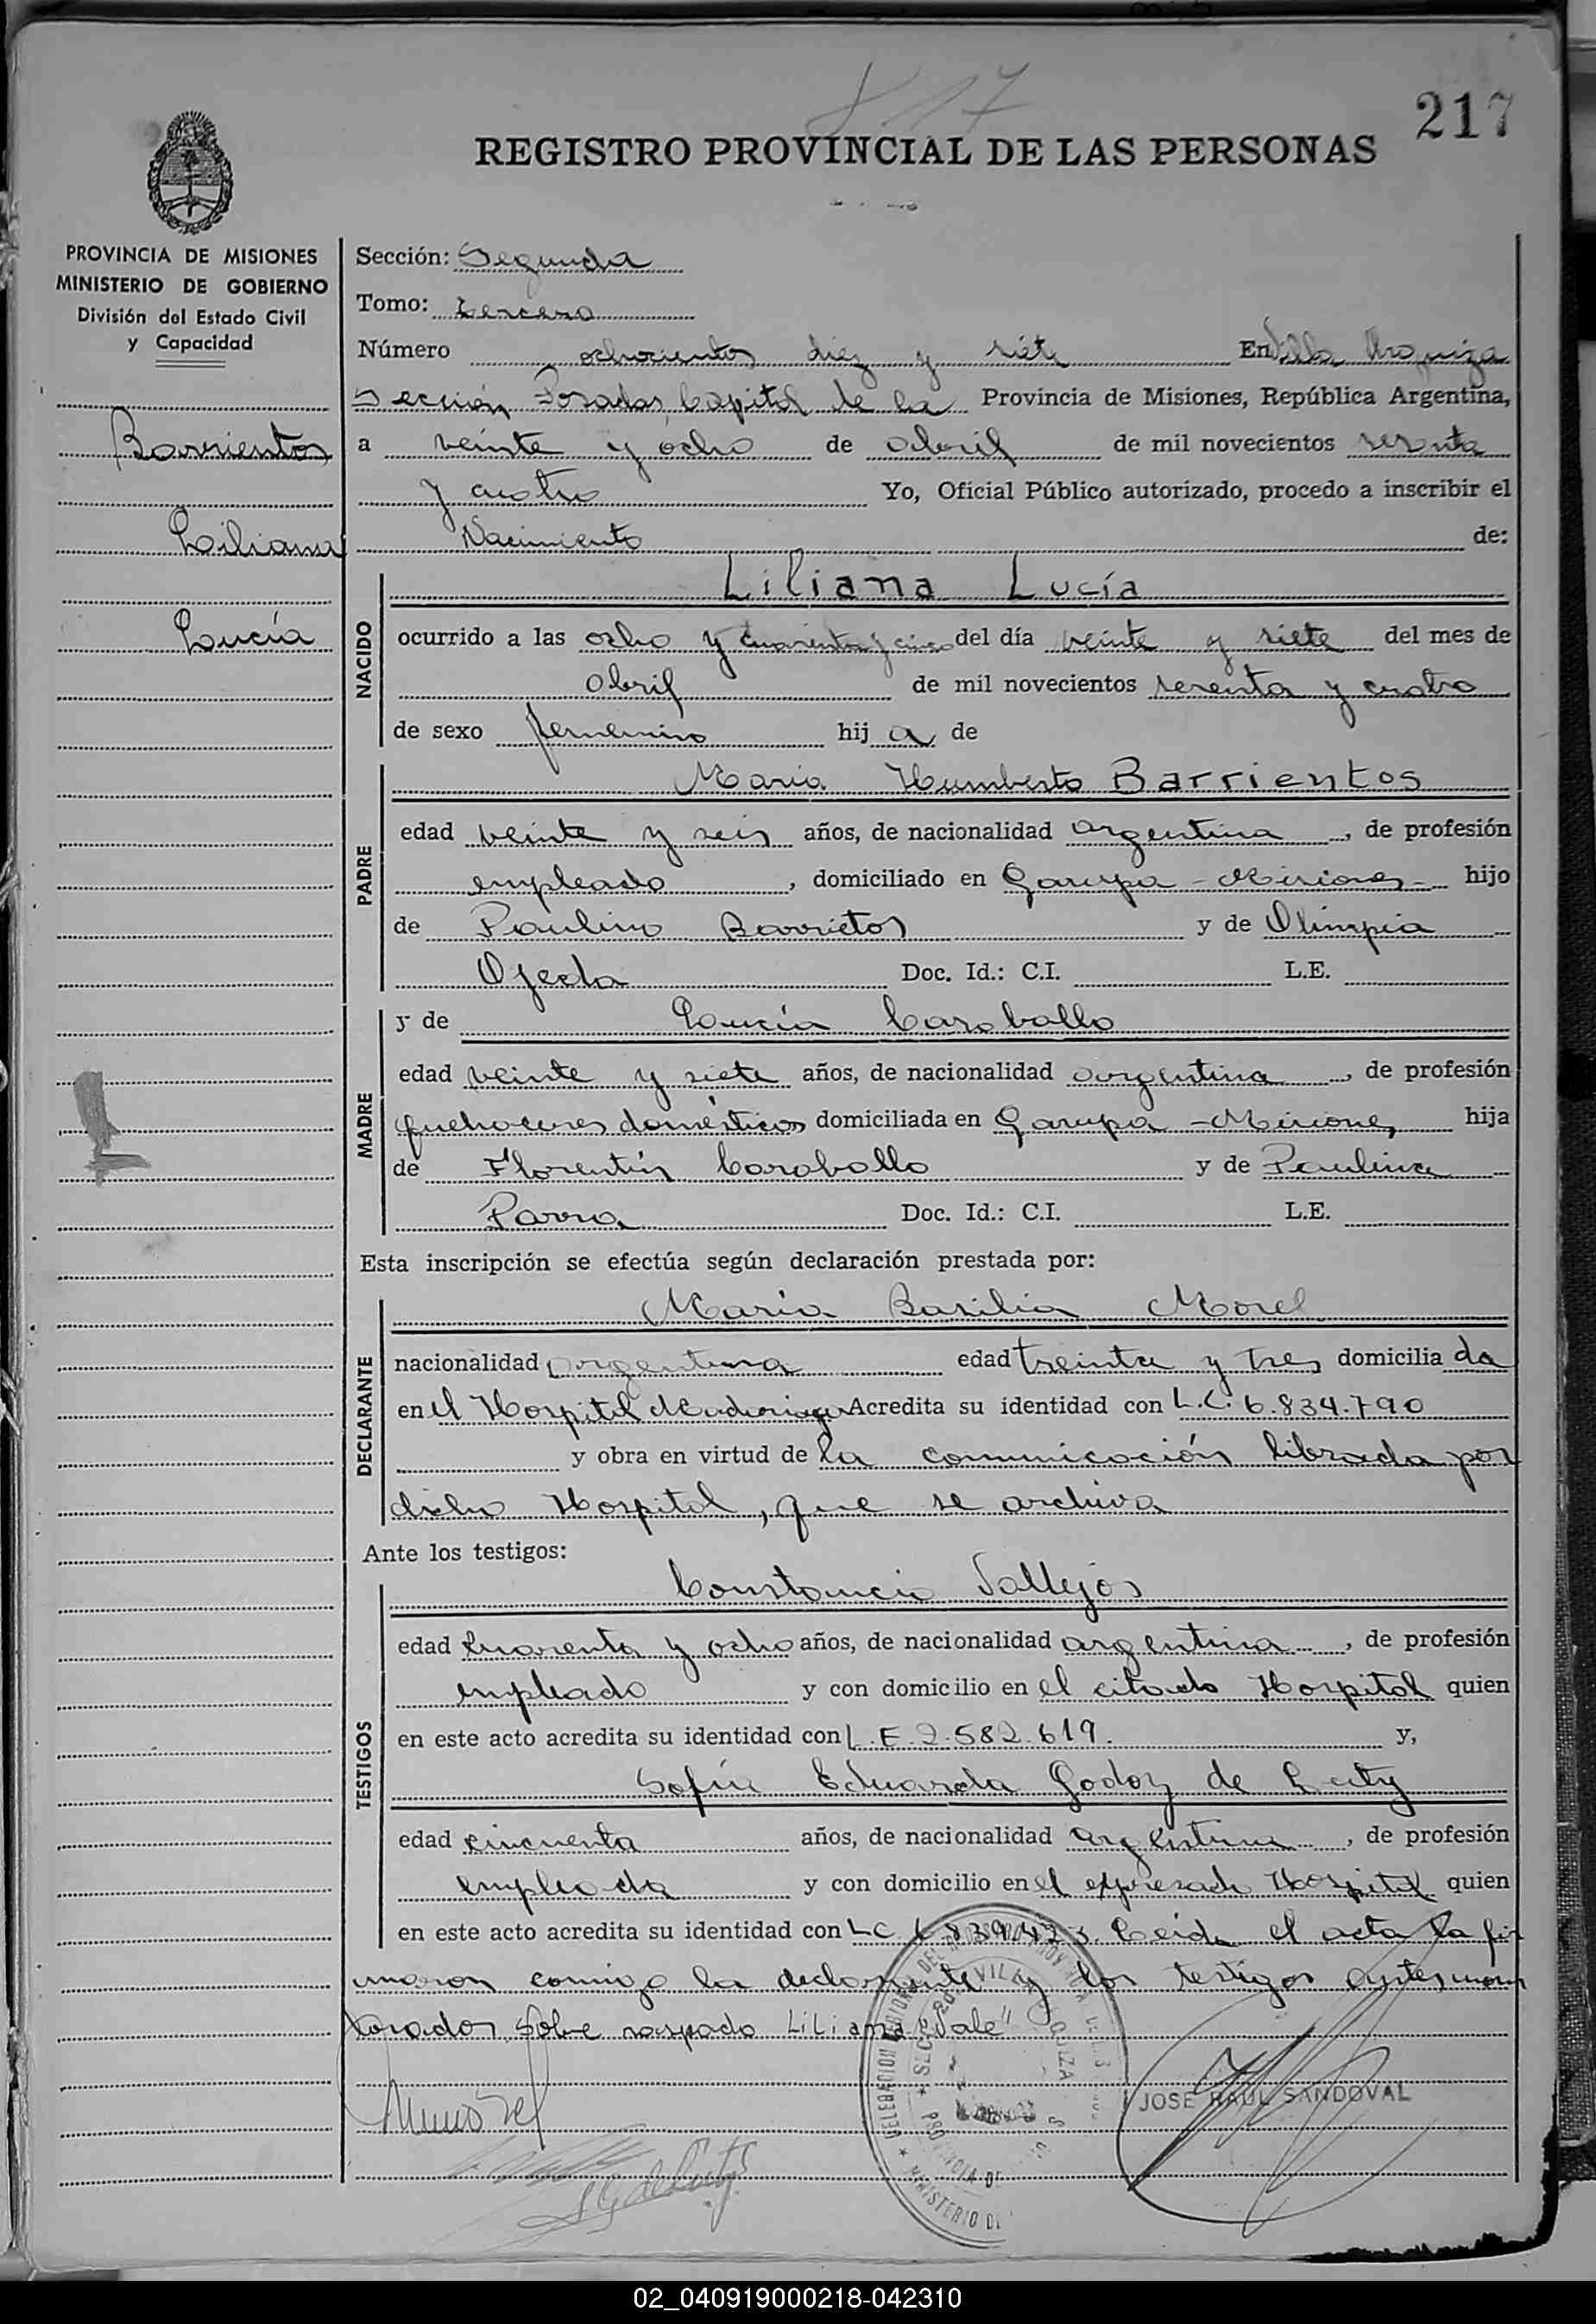 817
217
REGISTRO PROVINCIAL DE LAS PERSONAS
PROVINCIA DE MISIONES
MINISTERIO DE GOBIERNO
División del Estado Civil
y Capacidad
Barrientos
Liliana
Lucía
Sección: Segunda
Tomo: tercero
Número ochocientos diez y siete En Villa Urquiza
Sección Posadas, Capital de la Provincia de Misiones, República Argentina,
a veinte y ocho de abril de mil novecientos sesenta
y cuatro Yo, Oficial Público autorizado, procedo a inscribir el
Nacimiento de:
NACIDO
Liliana Lucía
ocurrido a las ocho y cuarenta y cinco del día veinte y siete del mes de
abril de mil novecientos sesenta y cuatro
de sexo femenino hij a de
PADRE
Mario Humberto Barrientos
edad veinte y seis años, de nacionalidad argentina, de profesión
empleado, domiciliado en Garupa - Misiones - hijo
de Paulino Barrietos y de Olimpia
Ojeda Doc. Id.: C.I. L.E.
MADRE
y de Lucía Caraballo
edad veinte y siete años, de nacionalidad argentina, de profesión
quehaceres domésticos domiciliada en Garupa - Misiones, hija
de Florentín Caraballo y de Paulina
Parra Doc. Id.: C.I. L.E.
Esta inscripción se efectúa según declaración prestada por:
DECLARANTE
María Basilia Morel
nacionalidad argentina edad treinta y tres domicilia da
en el Hospital Madariaga Acredita su identidad con L.C. 6.834.790
y obra en virtud de la comunicación librada por
dicho Hospital, que se archiva
Ante los testigos:
TESTIGOS
Constancio Vallejos
edad cuarenta y ocho años, de nacionalidad argentina, de profesión
empleado y con domicilio en el citado Hospital quien
en este acto acredita su identidad con L.E. 2.582.619. y,
Sofía Eduarda Godoy de
edad cincuenta años, de nacionalidad argentina, de profesión
empleada y con domicilio en el expresado Hospital quien
en este acto acredita su identidad con LC 6.839.423. Leida el acta la fir
maron conmigo la declarante y los testigos antes men
Sobre raspado Liliana "Vale"
JOSE RAUL SANDOVAL
02_040919000218-042310